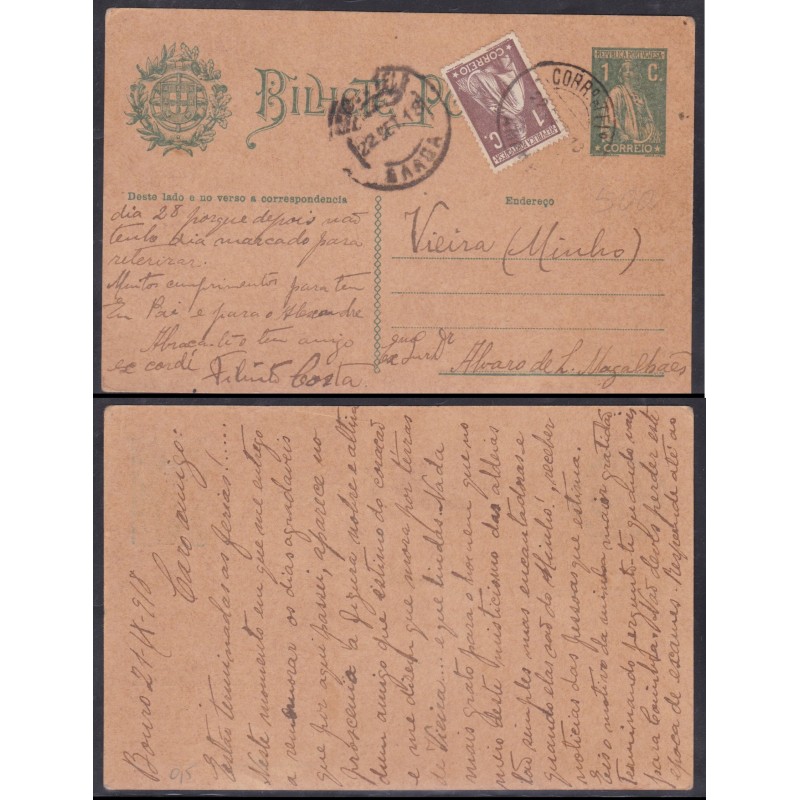 BILHETE PO
REPUBLICA PORTUGUESA
1 C.
CORREIO
CORREIO
1 C.
REPUBLICA PORTUGUESA
22 SET 18
BRAGA
CORREIO
Deste lado e no verso a correspondencia
Endereço
dia 28 porque depois não
tenho dia marcado para
reterirar.
Muitos cumprimentos para teu
Ex Pai e para o Alexandre
Abraça-te o teu amigo
ex cordé
Filinto Costa
Vieira (Minho)
Dr
Alvaro de L. Magalhães
Bouro 21-IX-918
Caro amigo:
Estão terminadas as ferias!.....
Neste momento em que me entrego
a rememorar os dias agradaveis
que por aqui passei, aparece no
proscenio a figura nobre e altiva
dum amigo que estimo do coração
e me dizem que mora por terras
de Vieira... e que lindas. Nada
mais grato para o homem que no
meio deste misticismo das aldeias
tão simples mas encantadoras e
quando elas são do Minho!, receber
noticias das pessoas que estima.
Eis o motivo da minha maior gratidão
Terminando pergunto-te quando vais
para Coimbra. Não deves perder esta
epoca de exames. Responde até ao
95